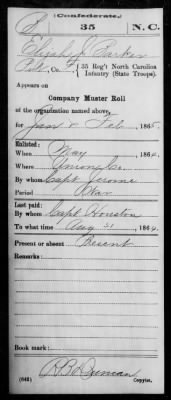 (Confederate.)
P 35 N.C.
Elijah J. Parker
Pvt, Co. F, 35 Reg't North Carolina
Infantry (State Troops).
Appears on
Company Muster Roll
of the organization named above,
for Jan & Feb, 1865.
Enlisted:
When May, 1864.
Where Union Co.
By whom Capt Jerome
Period War
Last paid:
By whom Capt Houston
To what time Aug 31, 1864.
Present or absent Present
Remarks:
Book mark:
Duncan
(642) Copyist.